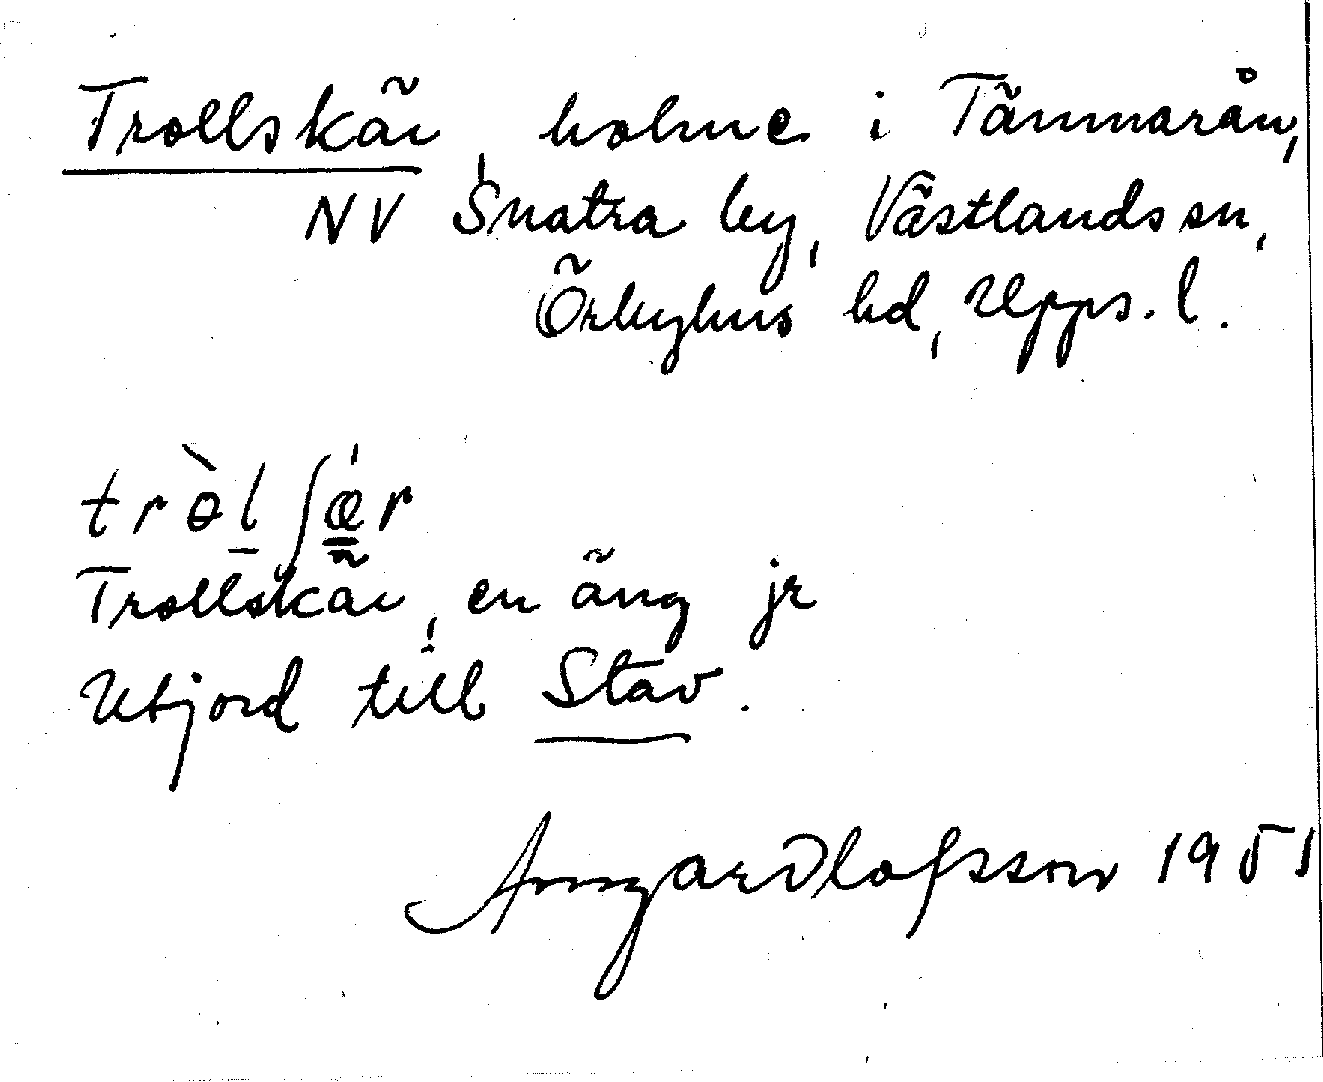 Trollskär, holme i Tämnarån,
NV Snatra by, Västlands sn,
Örbyhus hd, Upps. l.
trò̱lʃæ̳̀r
Trollskär, en äng jr
Utjord till Stav.
Olofsson 1951